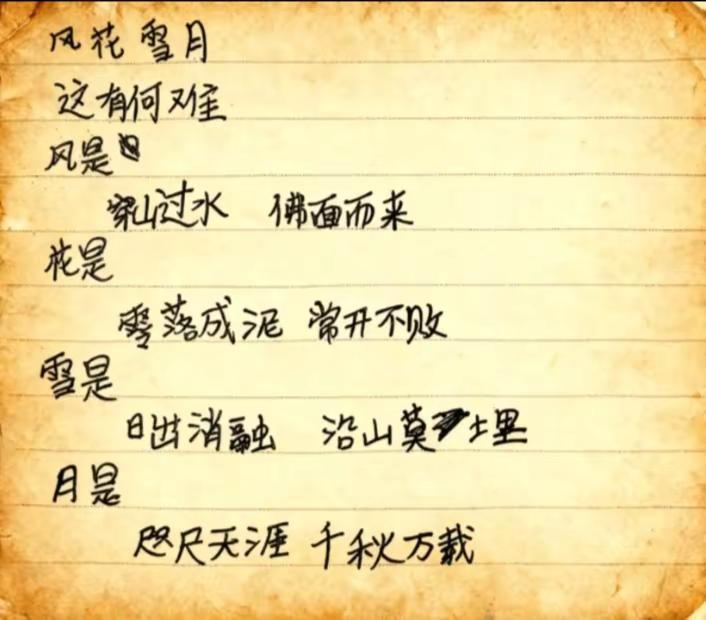 风花雪月
这有何难
风是
穿山过水 佛面而来
花是
零落成泥 常开不败
雪是
日出消融 沿山莫埋
月是
咫尺天涯 千秋万载